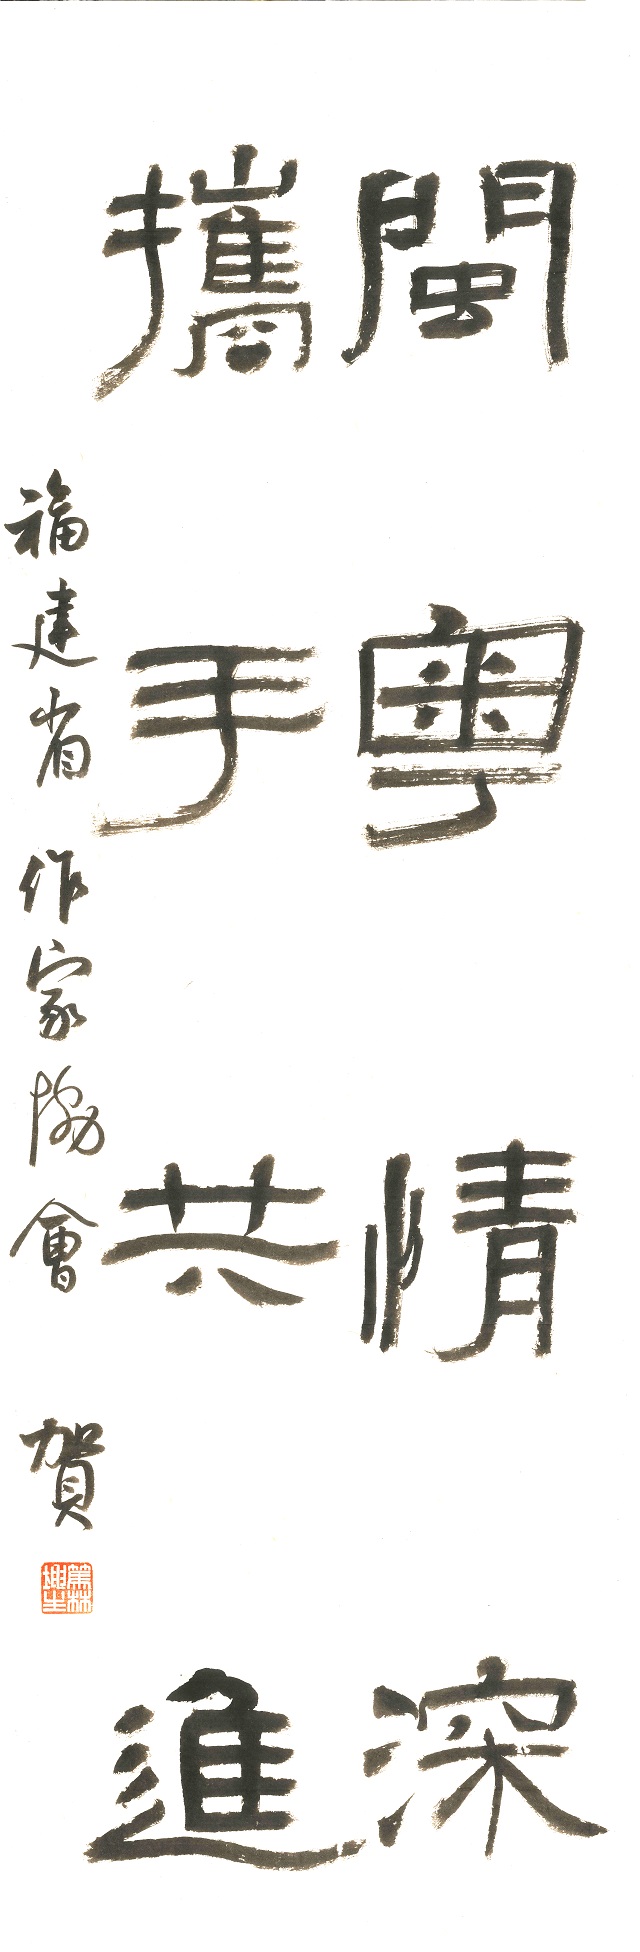 閩粤情深
攜手共進
福建省作家協會 賀